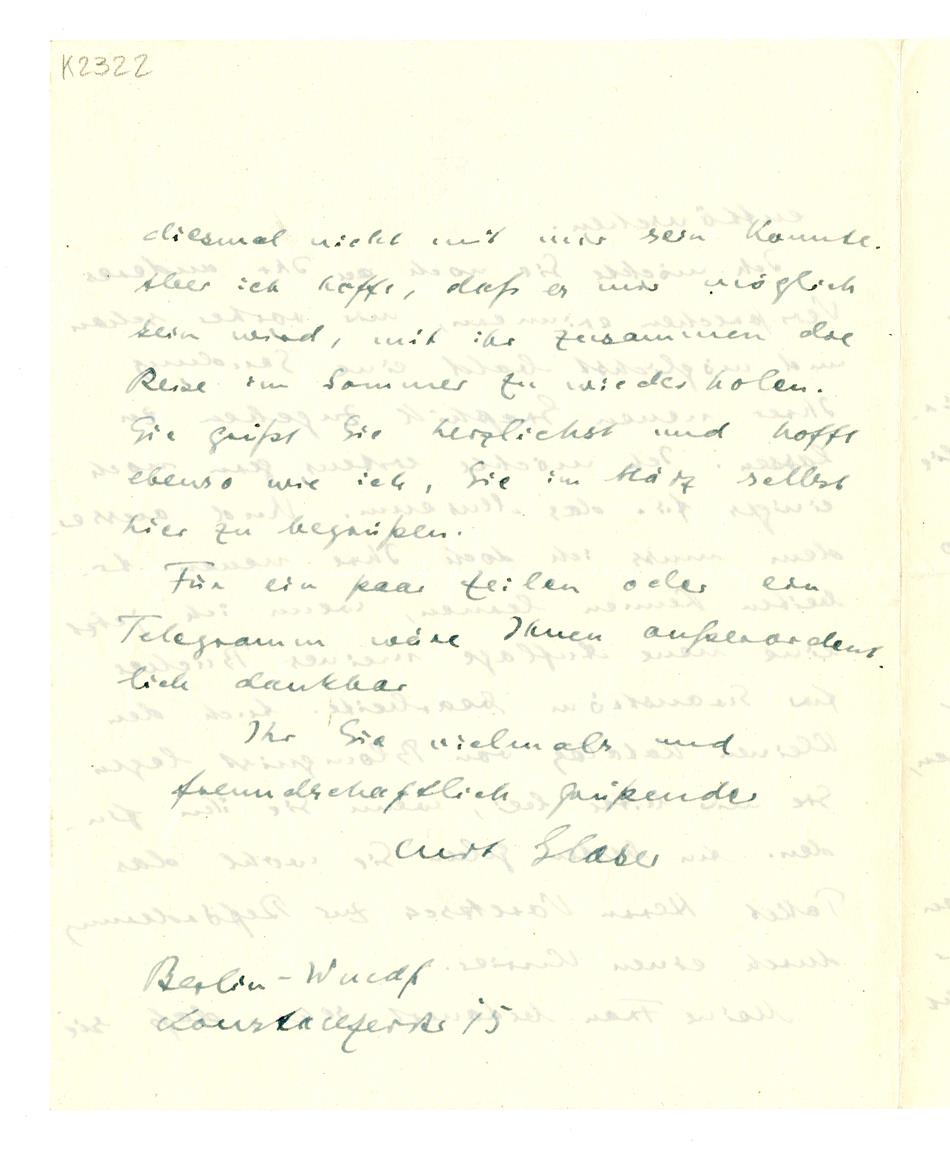 K2322
diesmal nicht mit mir sein konnte.
Aber ich hoffe, daß es mir möglich
sein wird, mit ihr zusammen die
Reise im Sommer zu wiederholen.
Sie grüßt Sie herzlichst und hofft
ebenso wie ich, Sie im März selbst
hier zu begrüßen.
Für ein paar Zeilen oder ein
Telegramm wäre Ihnen außerordent-
lich dankbar
Ihr Sie vielmals und
freundschaftlich grüßender
Curt Glaser
Berlin-Wmdf
Konstanzerstr 15